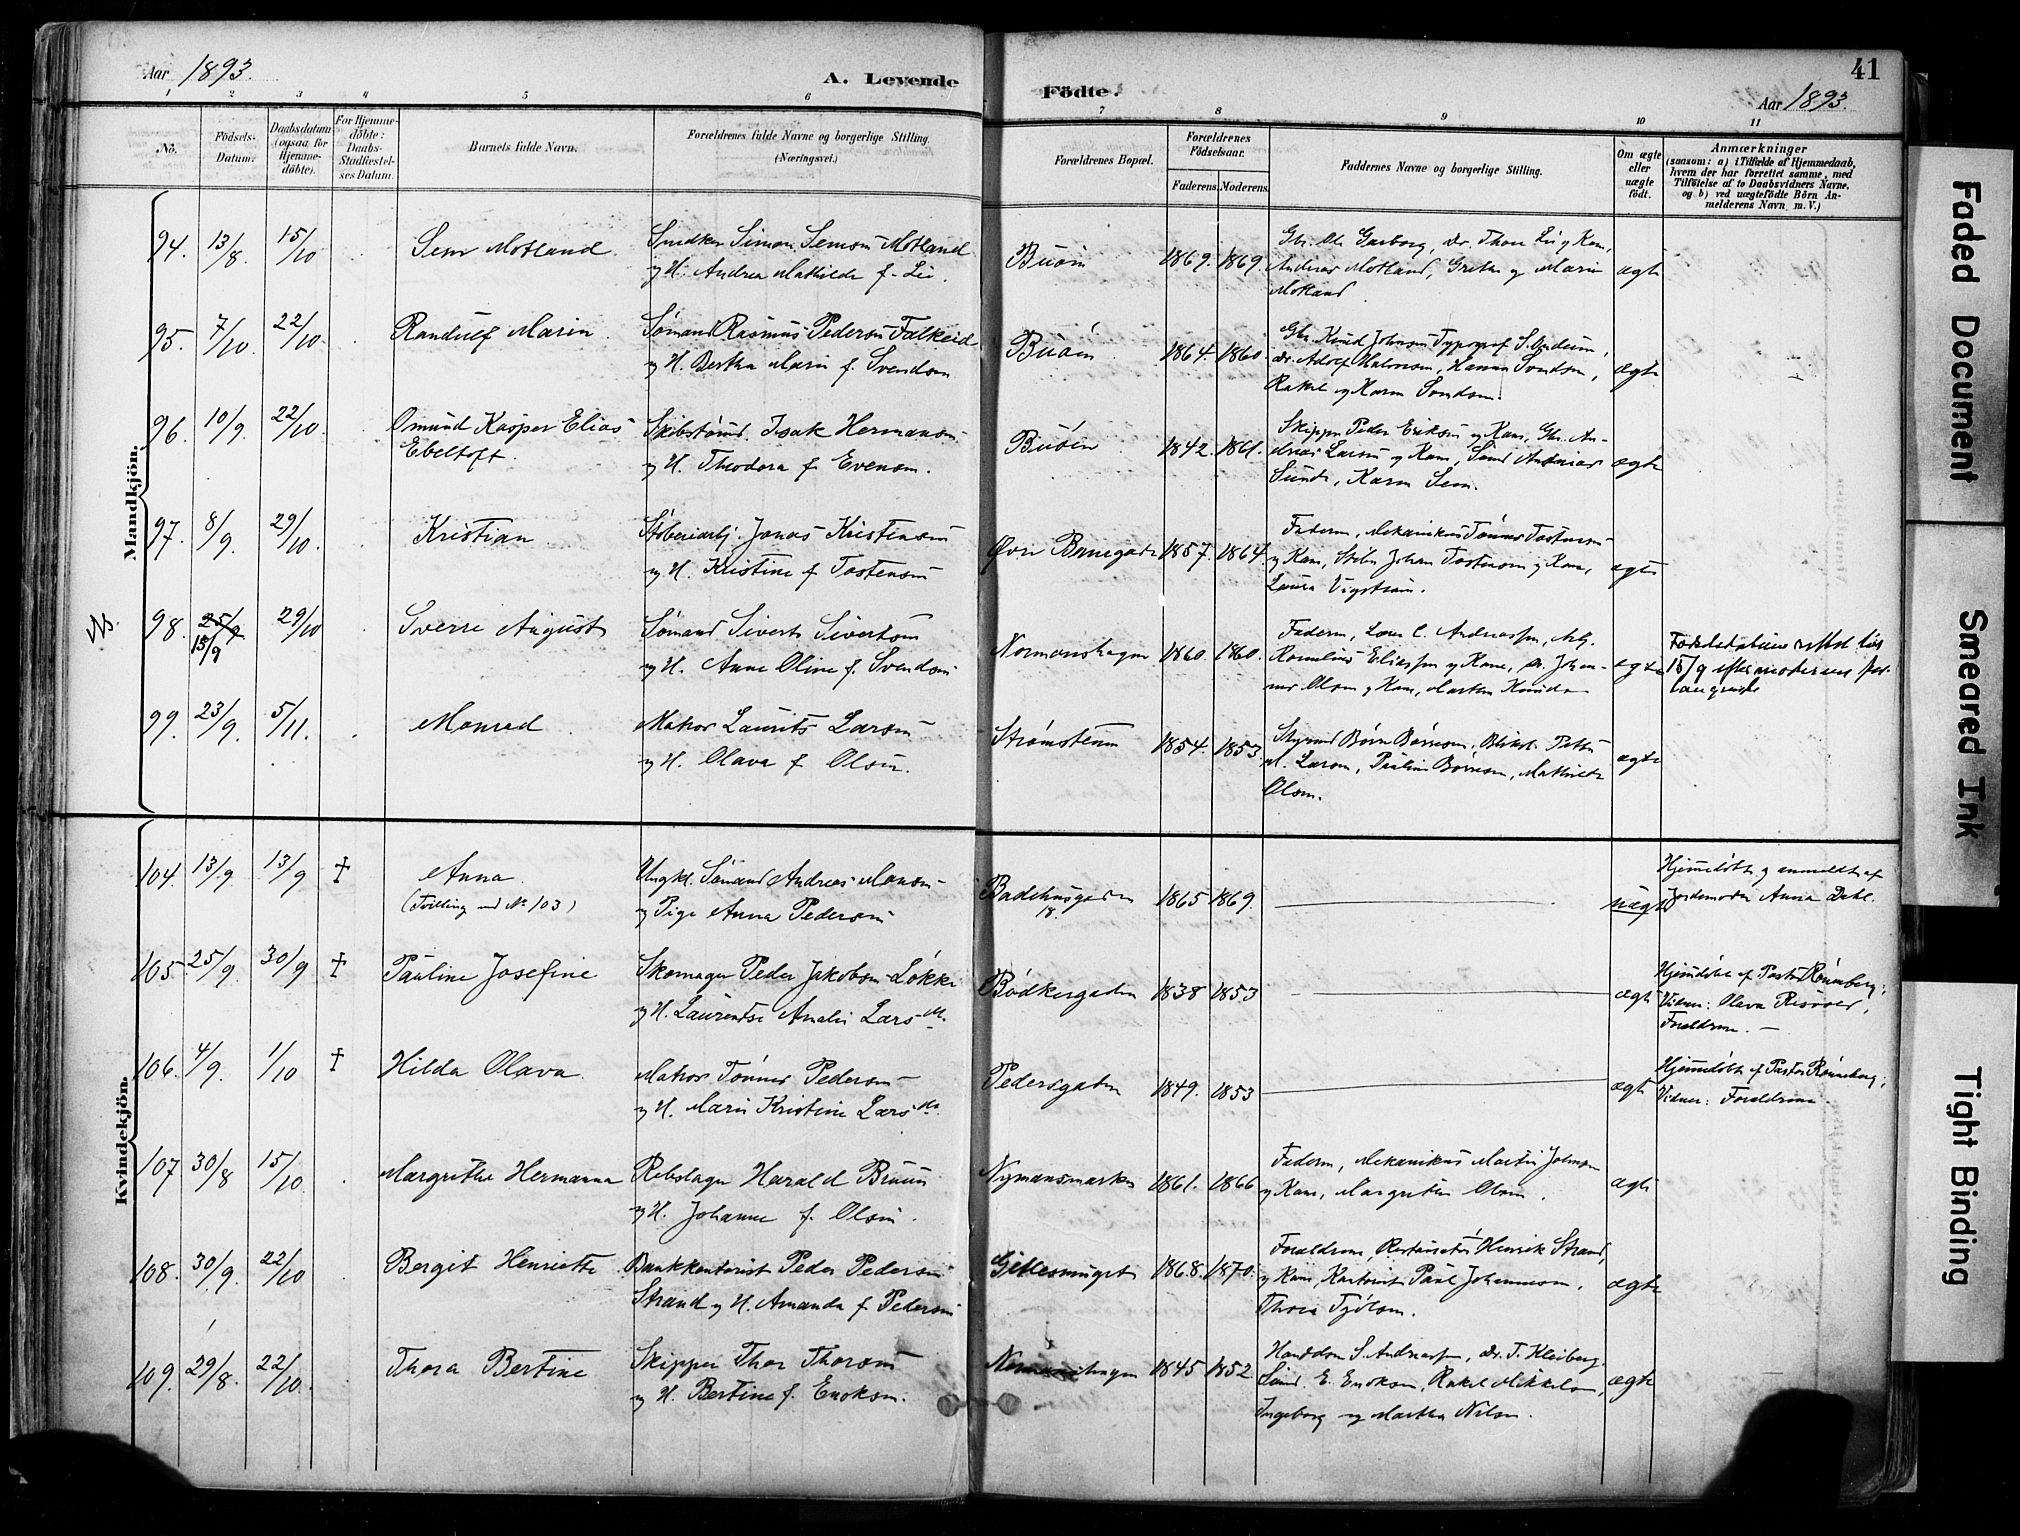 Aar 1893.
A. Levende
Fødte.
41
Aar 1893.
1 2 3 4 5 6 7 8 9 10 11
No.
Fødsels-Datum.
Daabsdatum (ogsaa for Hjemmedøbte).
For Hjemmedøbte: Daabs-Stadfæstelses Datum.
Barnets fulde Navn.
Forældrenes fulde Navne og borgerlige Stilling. (Næringsvei.)
Forældrenes Bopæl.
Forældrenes Fødselsaar.
Faderens. Moderens.
Faddernes Navne og borgerlige Stilling.
Om ægte eller uægte født.
Anmærkninger
(saasom: a) i Tilfælde af Hjemmedaab, hvem der har forrettet samme, med Tilføielse af to Daabsvidners Navne, og b) ved uægtefødte Børn Anmelderens Navn m. V.)
Mandkjön.
94. 13/8 15/10 Sem Motland
Snedker Simon Semsen Motland
og H. Andrea Mathilde f. Lie.
Buøen 1869. 1869.
Gbr. Ole Garborg, Dr. Thore Lie og Kone,
Andreas Motland, Grethe og Marie
Motland
ægte
95. 7/10. 22/10. Randulf Marin
Sømand Rasmus Pedersen Falkeid
og H. Bertha Marie f. Svendsen
Buøen 1864. 1860.
Gbr. Knud Johnsen Typograf S.
Rakel og Karen
ægte
96. 10/9. 22/10. Omund Kasper Elias
Ebeltoft.
Skibstømd. Isak Hermansen
og H. Theodora f. Evensen.
Buøen 1842. 1861.
Skipper Peder Eriksen og Kone, Gbr. An-
dreas Larsen og Kone,
Sunde, Karen Sem.
ægte
97. 8/9. 29/10. Kristian
Støberiarb. Jonas Kristensen
og H. Kristine f. Tostensen
Øvre Banegade 1857. 1864.
Faderen, Mekanikus Tønnes Tostensen
og Kone, Støber Johan Tostensen og Kone,
Laura Vigstrøm.
ægte
Ns.
98. 25/9 29/10 Sverre August
15/9
Sømand Sivert Sivertsen
og H. Anne Oline f. Svendsen
Normanshagen 1860. 1860.
Faderen, Lærer C. Andreassen, Arb.
Kornelius Eliassen og Kone, Dr. Johan-
nes Olsen og Kone, Marthe
ægte
Fødselsdatum rettet til
15/9 efter moderens for-
langende
99. 23/9. 5/11. Monrad
Matros Laurits Larsen
og H. Olava f. Olsen.
Strømstenen 1854. 1853.
Styrmd Børre Børresen, Petter
M. Larsen, Pauline Børresen, Mathilde
Olsen.
ægte
Kvindekjön.
104. 13/9 13/9 † Anna
(Tvilling med No 103)
Ungkl. Sømand Andreas Monsen
og Pige Anna Pedersen
Badehusgaden
18.
1865 1869.
uægte
Hjemmedøbt og anmeldt af
Jordemoder Anna Dahl.
105. 25/9 30/9 † Pauline Josefine
Skomager Peder Jakobsen Løkke
og H. Laurentse Amalie Larsdtr.
Bødkergaden 1838 1853
ægte
Hjemmedøbt af Pastor Rønneberg;
Vidner: Olava Risvold,
Forældrene. —
106. 4/9. 1/10 † Hilda Olava.
Matros Tønnes Pedersen
og H. Marie Kristine Larsdtr.
Pedersgaden 1849. 1853
ægte
Hjemmedøbt af Pastor Rønneberg;
Vidner: Forældrene.
107 30/8 15/10. Margrethe Hermanna
Rebslager Harald Bruun
og H. Johanne f. Olsen.
Nymansmarken 1861. 1866
Faderen, Mekanikus Martin Johnsen
og Kone, Margrethe Olsen.
ægte
108. 30/9. 22/10 Bergit Henriette
Bankkontorist Peder Pedersen
Strand og H. Amanda f. Pedersen
Gildesmuget 1868. 1870.
Forældrene, Restauratør Henrik Strand,
og Kone, Paul Johannesen,
Thora
ægte
109. 29/8. 22/10. Thora Bertine
Skipper Thor Thorsen
og H. Bertine f. Enoksen.
Normanshagen 1845 1852
S. Andreassen, Dr. T. Kleiberg,
E. Enoksen, Rakel Mikkelsen,
Ingeborg og Martha Nilsen.
ægte
Faded Document
Smeared Ink
Tight Binding